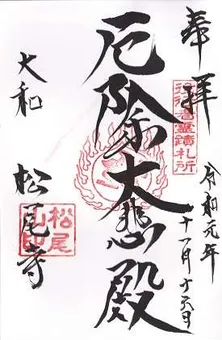 奉拝
令和元年
十一月十六日
役行者霊蹟札所
厄除大悲殿
大和
松尾寺
松尾山印